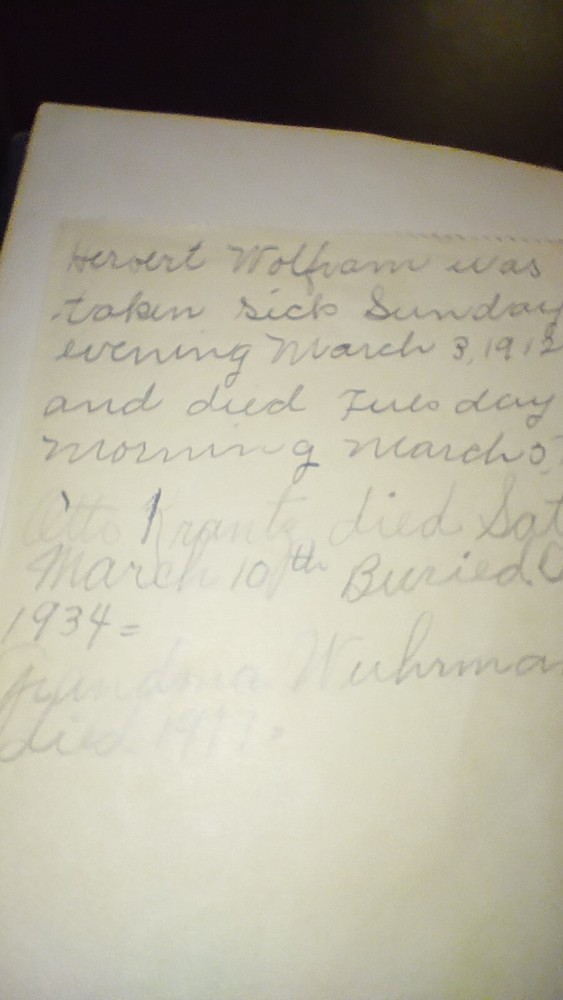 Herbert Wolfram was
taken sick Sunday
evening March 3, 1912
and died Tuesday
morning March 5
Otto Krantz died Sat
March 10th Buried
1934=
Grandma Wuhrma
died